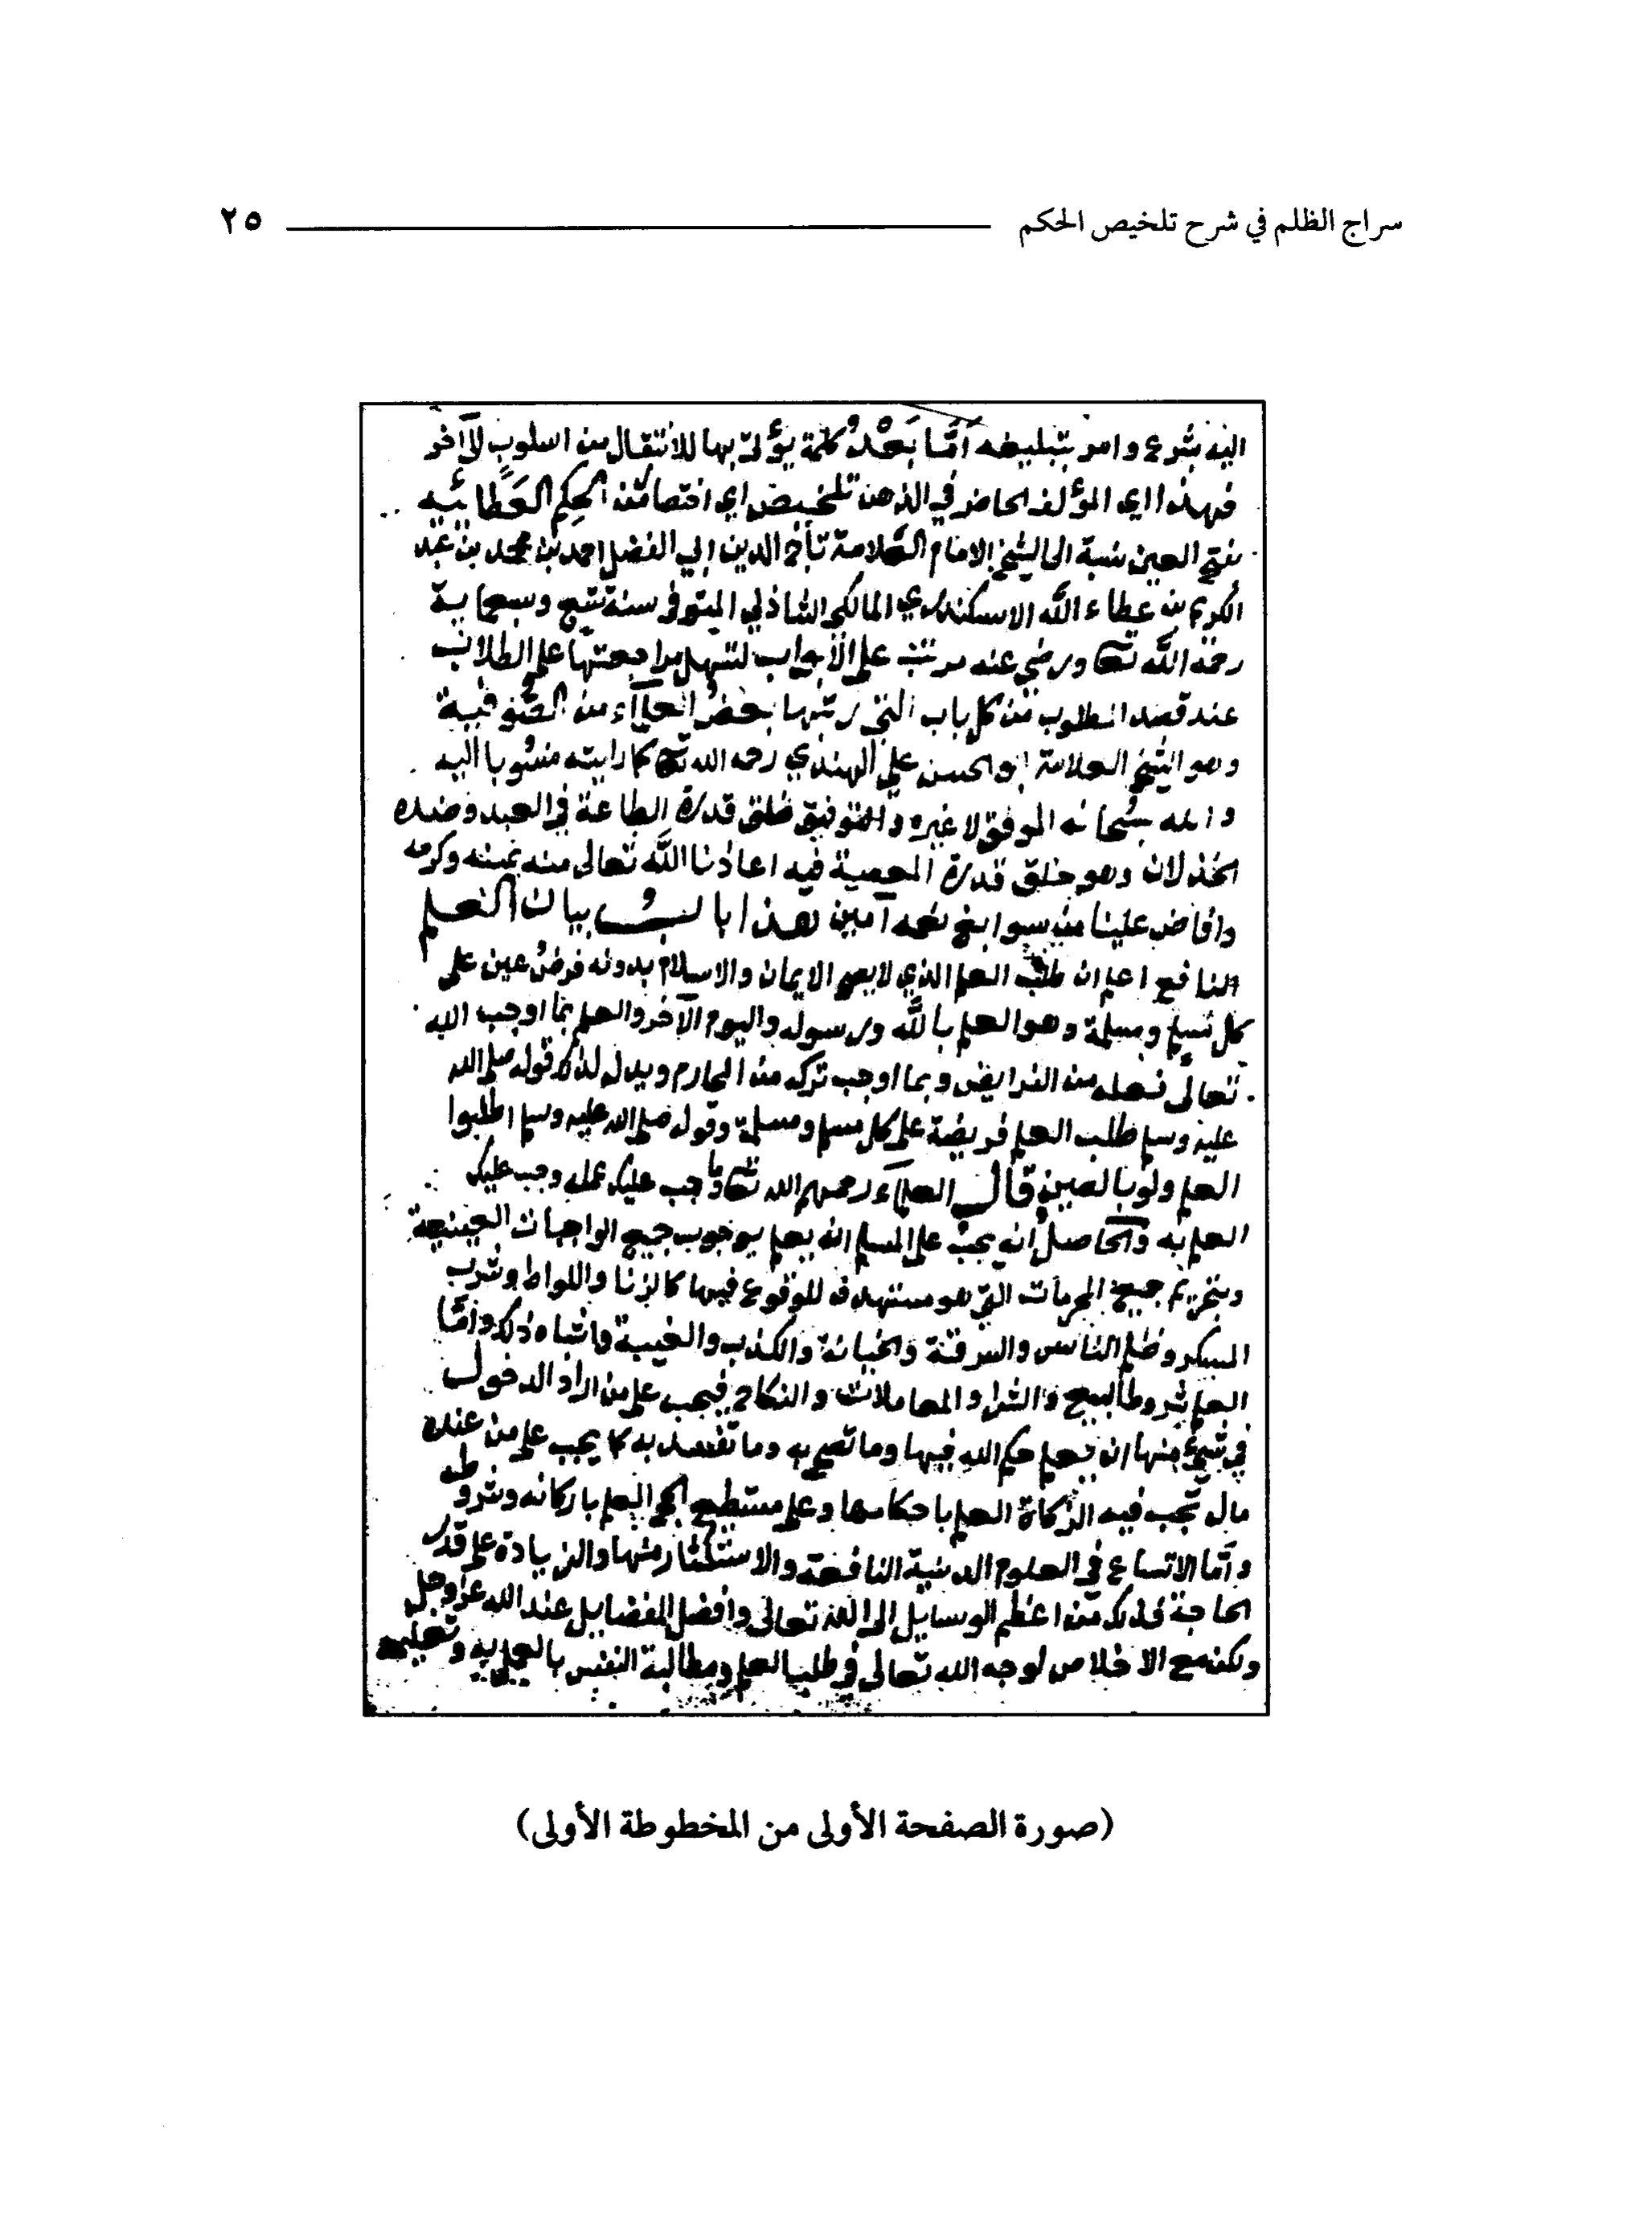 سراج الظلم في شرح تلخيص الحكم ٢٥
اليه بشرع وامر بتبليغه أمّا بَعْدُ كلمة يؤتى بها للانتقال من اسلوب الى آخر
فهذا اي المؤلف الحاضر في الذهن تلخيص اي اختصار من الحِكَم العَطائيه
بفتح العين نسبة الى الشيخ الامام العلامة تاج الدين ابي الفضل احمد بن محمد بن عبد
الكريم بن عطاء الله الاسكندري المالكي الشاذلي المتوفى سنة تسع وسبعماية
رحمه الله تعا ورضي عنه مرتب على الأبواب لتسهل مراجعتها على الطلاب
عند قصد المطلوب من كل باب التي رتبها بعضُ العلماء من الصُّوفية
وهو الشيخ العلامة ابو الحسن علي الهندي رحمه الله تع كما رايته منسوبا اليه
والله سُبحانه الموفق لا غيره والتوفيق خلق قدرة الطاعة في العبد وضده
الخذلان وهو خلق قدرة المعصية فيه اعاذنا الله تعالى منه بمنه وكرمه
وافاض علينا من سوابغ نعمه آمين هذا بابُ بيان العلم
النافع اعلم ان طلب العلم الذي لا يصح الايمان والاسلام بدونه فرضُ عين على
كل مسلم ومسلمة وهو العلم بالله ورسوله واليوم الآخر والعلم بما اوجب الله
تعالى فعله من الفرايض وبما اوجب تركه من المحارم ويدل لذلك قوله صلى الله
عليه وسلم طلب العلم فريضة على كل مسلم ومسلمة وقوله صلى الله عليه وسلم اطلبوا
العلم ولو بالصين قال العلماء رحمهم الله تعا ما وجب عليك عمله وجب عليك
العلم به والحاصل أنه يجب على المسلم ان يعلم بوجوب جميع الواجبات العينية
وبتحريم جميع المحرمات التي هو مستهدف للوقوع فيها كالزنا واللواط وشرب
المسكر وظلم الناس والسرقة والخيانة والكذب والغيبة واشباه ذلك وأمّا
العلم بشروط البيع والشرا والمعاملات والنكاح فيجب على من اراد الدخول
في شيء منها ان يعلم حكم الله فيها وما تصح به وما تفسد به كما يجب على من عنده
مال تجب فيه الزكاة العلم باحكامها وعلى مستطيع الحج العلم باركانه وشروطه
وأمّا الاتساع في العلوم الدينية النافعة والاستكثار منها والزيادة على قدر
الحاجة فذلك من اعظم الوسايل الى الله تعالى وافضل الفضايل عند الله عز وجل
ولكن مع الاخلاص لوجه الله تعالى في طلب العلم ومطالبة النفس بالعمل به وتعليمه
(صورة الصفحة الأولى من المخطوطة الأولى)